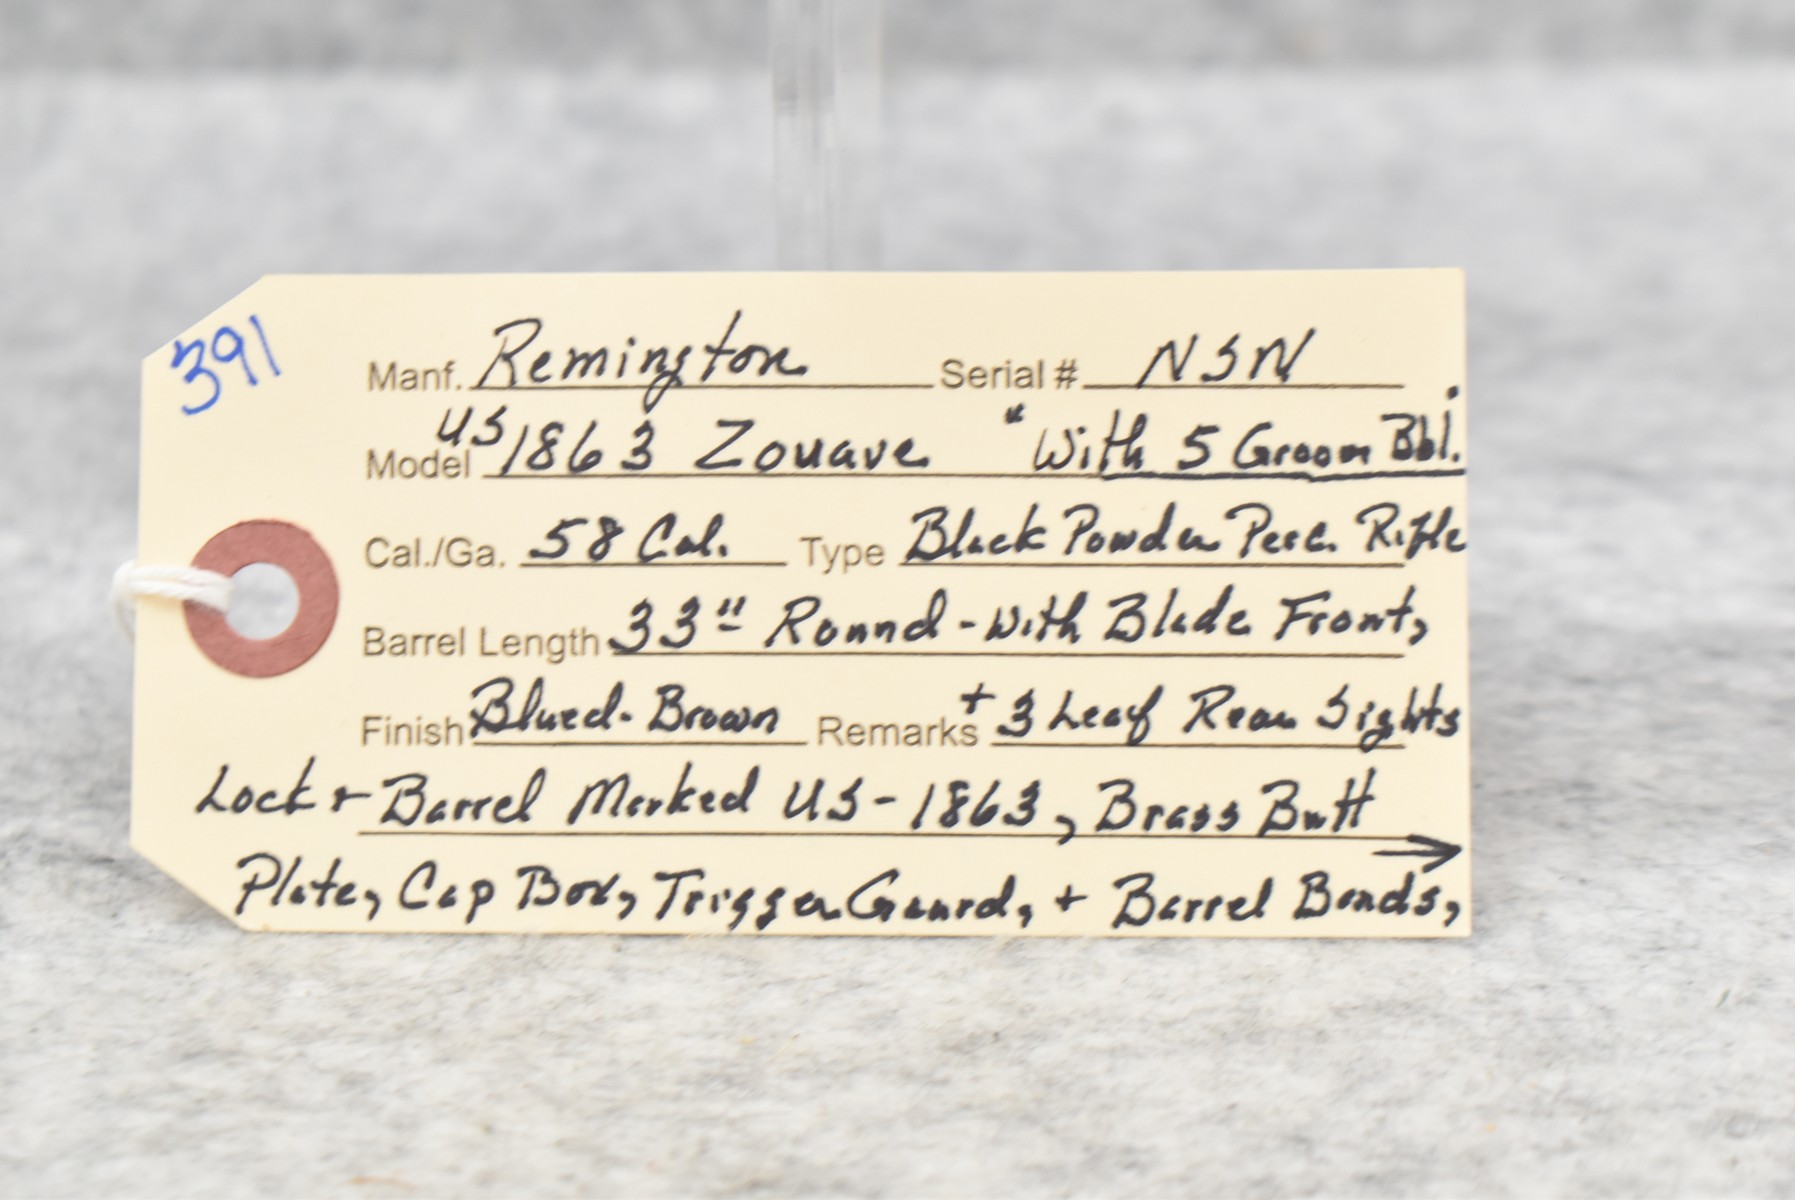 391
Manf. Remington Serial # NSN
Model US 1863 Zouave "With 5 Groom Bbl.
Cal./Ga. 58 Cal. Type Black Powder Perc. Rifle
Barrel Length 33" Round - With Blade Front,
Finish Blued - Brown Remarks + 3 Leaf Rear Sights
Lock + Barrel Marked US - 1863, Brass Butt →
Plate, Cap Box, Trigger Guard, + Barrel Bands,